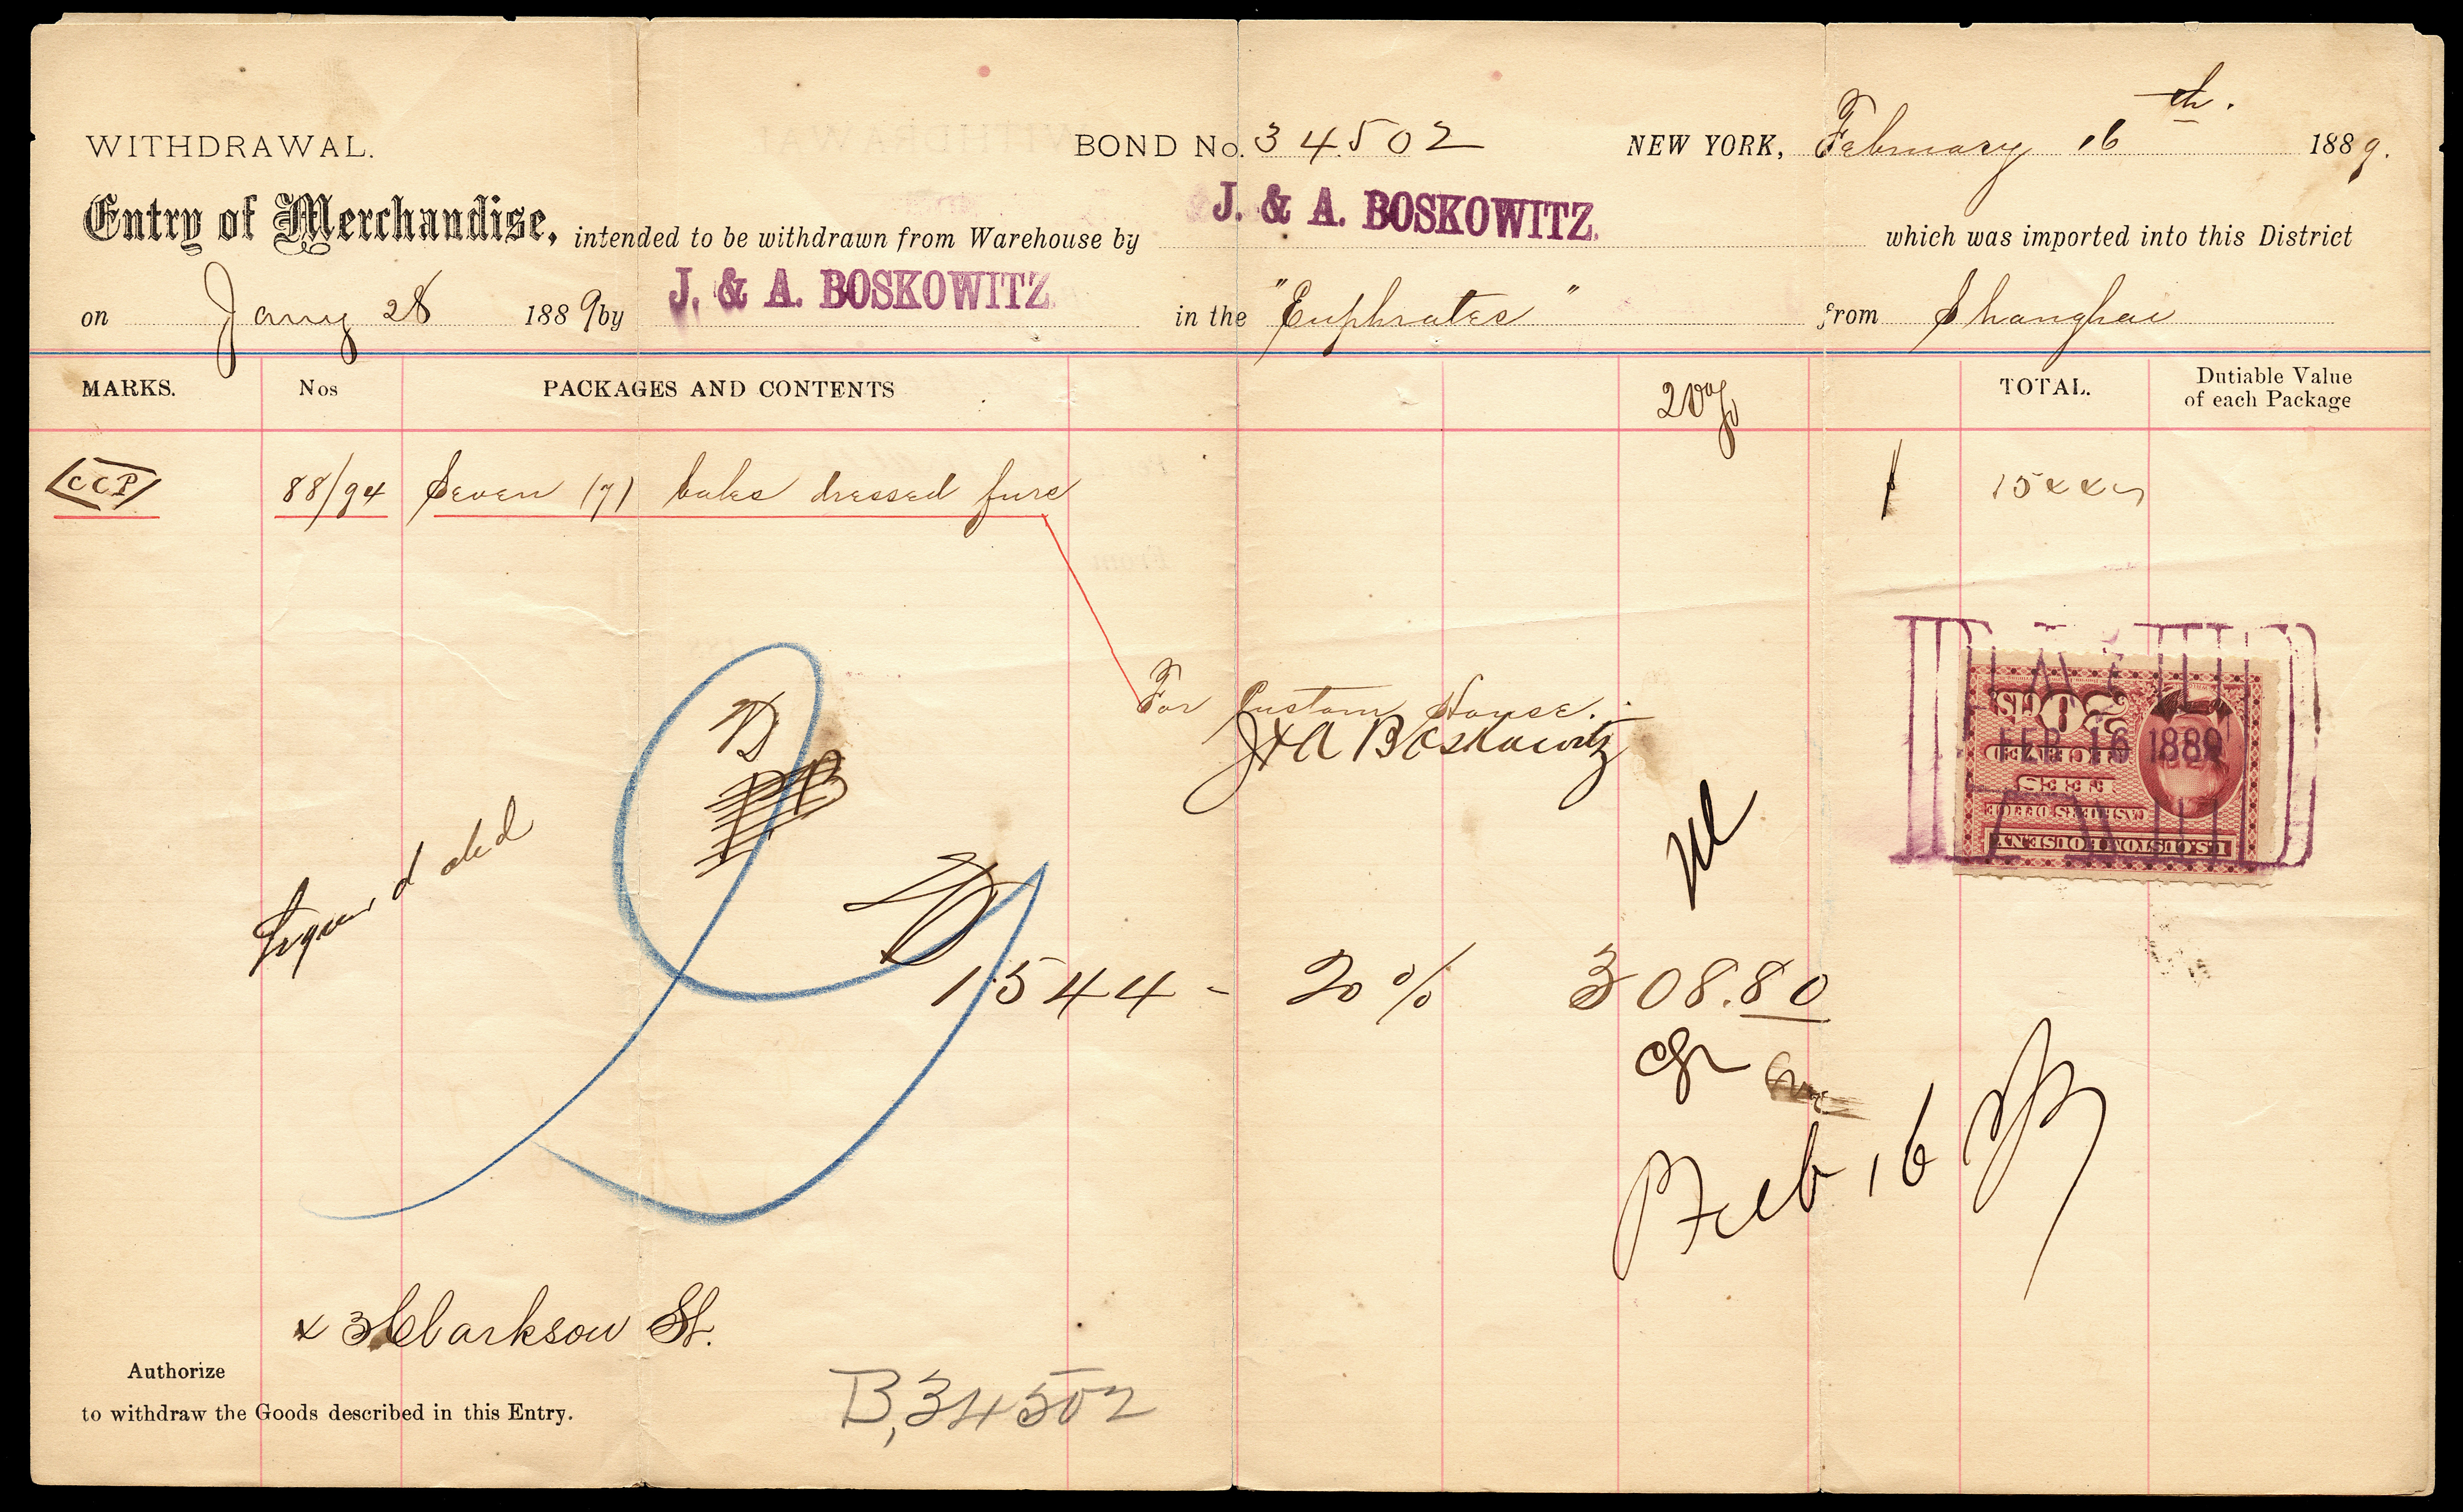 WITHDRAWAL. BOND No. 34502 NEW YORK, February 16th. 1889.
Entry of Merchandise, intended to be withdrawn from Warehouse by J. & A. BOSKOWITZ. which was imported into this District
on Jany 28 1889 by J. & A. BOSKOWITZ in the "Euphrates" from Shanghai
MARKS. Nos PACKAGES AND CONTENTS 20% TOTAL. Dutiable Value of each Package
CCP 88/94 Seven (7) bales dressed furs $ 1544
For Custom House.
J & A Boskowitz
20 CTS.
FEB 16 1889
RECEIVED
FEES
CASHIER'S OFFICE
U.S. CUSTOM HOUSE N.Y.
1544 - 20% 308.80
Feb 16
Clarkson St.
Authorize
to withdraw the Goods described in this Entry.
B, 34502